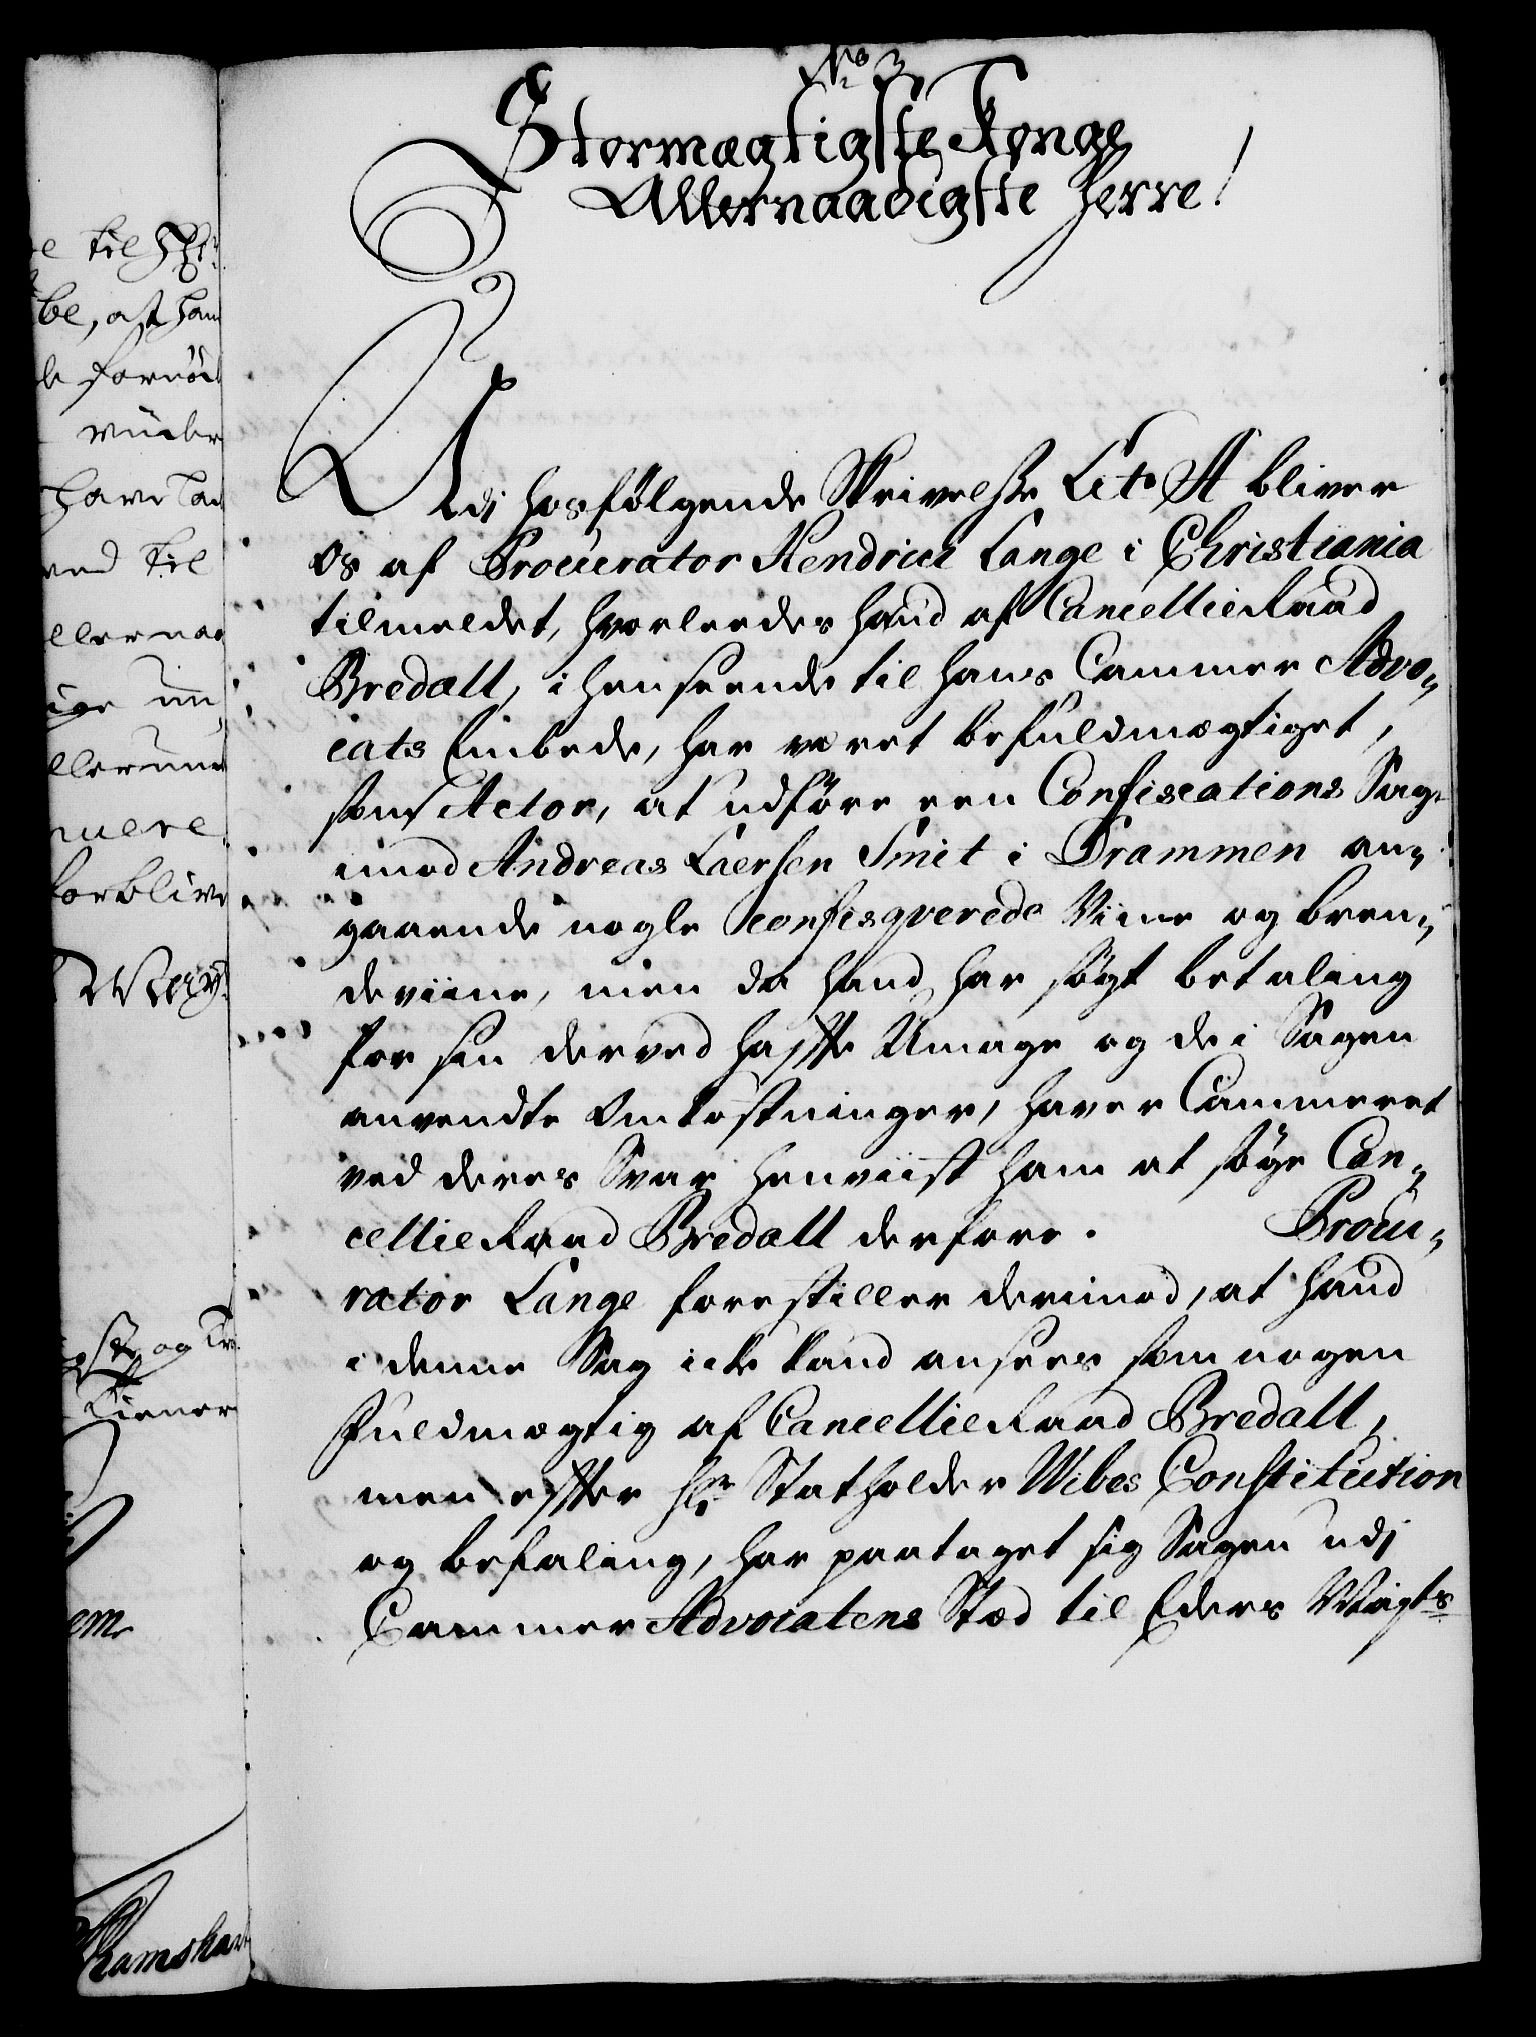 No 3
Stormægtigste Konge
Allernaadigste Herre!
Udi hosfølgende Skrivelse Lit. A bliver
os af Procurator Hendrich Lange i Christiania
tilmeldet, hvorleedes hand af CancellieRaad
Bredall, i henseende til hans Cammer Advo„
cats Embede, har været befuldmægtiget,
som Actor, at udføre een Confiscations Sag
imod Andreas Laersen Smit i Drammen an„
gaaende nogle confisqverede Viine og bren„
deviine, men da hand har søgt betaling
for sin derved hafte Umage og de i Sagen
anvendte Omkostninger, haver Cammeret
ved deres Svar henviist ham at søge Can„
cellieRaad Bredall derfore. Procu„
rator Lange forestiller derimod, at hand
i denne Sag icke kand ansees som nogen
Fuldmægtig af CancellieRaad Bredall,
men efter Hr Statholder Wibes Constitution
og befaling, har paataget sig Sagen udi
Cammer Advocatens Stæd til Eders Mayts
e til
be, at ham
have
ved til
forblive
og
Tiener